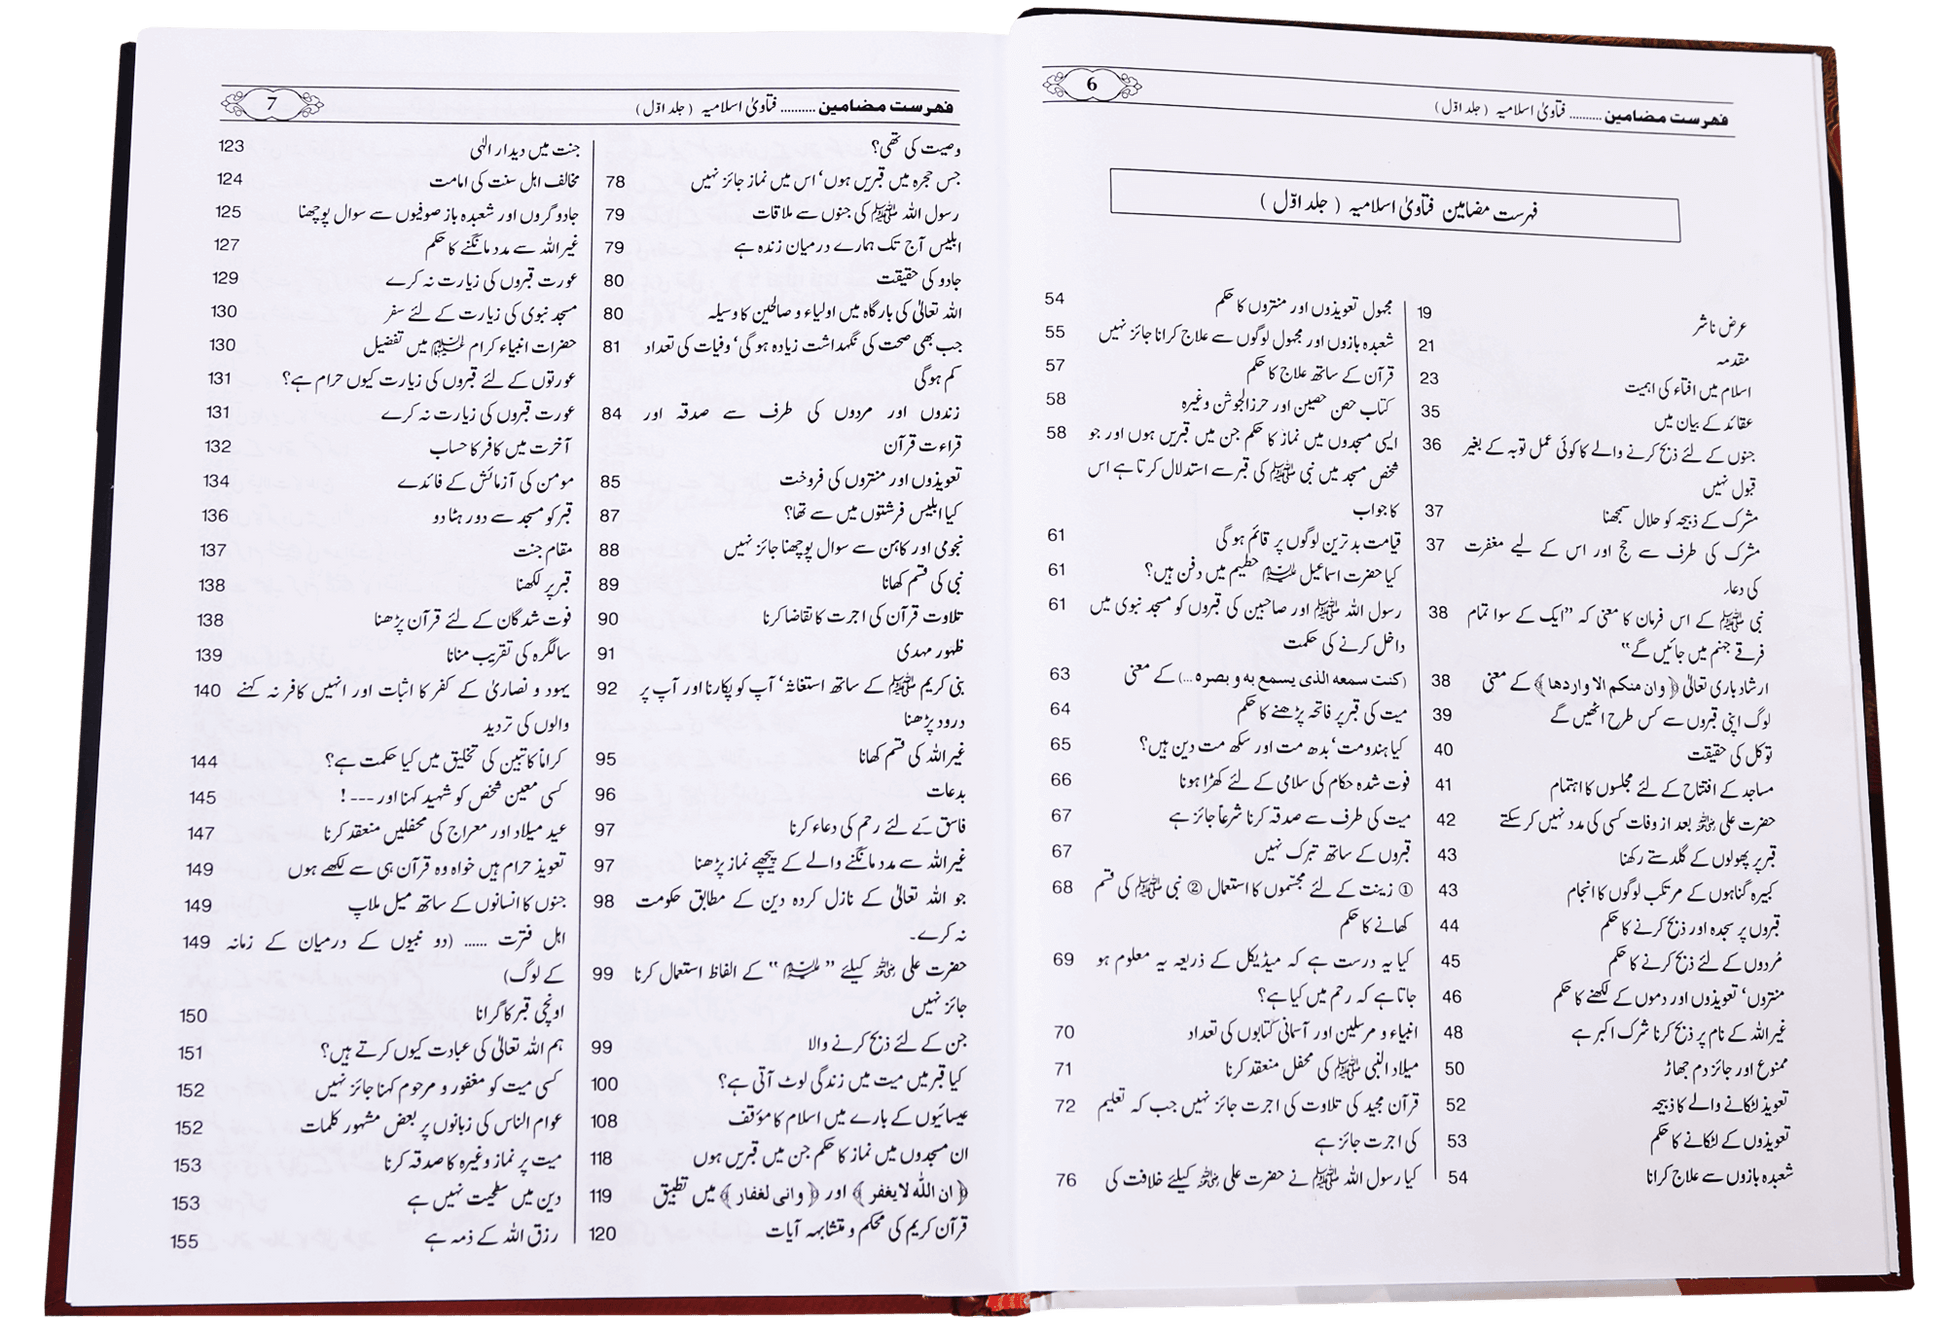 فہرست مضامین .......... فتاویٰ اسلامیہ ( جلد اوّل )
6
فہرست مضامین فتاویٰ اسلامیہ ( جلد اوّل )
عرض ناشر 19
مقدمہ 21
اسلام میں افتاء کی اہمیت 23
عقائد کے بیان میں 35
جنوں کے لئے ذبح کرنے والے کا کوئی عمل توبہ کے بغیر 36
قبول نہیں
مشرک کے ذبیحہ کو حلال سمجھنا 37
مشرک کی طرف سے حج اور اس کے لیے مغفرت 37
کی دعاء
نبی ﷺ کے اس فرمان کا معنی کہ ”ایک کے سوا تمام 38
فرقے جہنم میں جائیں گے“
ارشاد باری تعالیٰ ﴿وان منکم الا واردها﴾ کے معنی 38
لوگ اپنی قبروں سے کس طرح اٹھیں گے 39
توکل کی حقیقت 40
مساجد کے افتتاح کے لئے مجلسوں کا اہتمام 41
حضرت علی رضی اللہ عنہ بعد از وفات کسی کی مدد نہیں کرسکتے 42
قبر پر پھولوں کے گلدستے رکھنا 43
کبیرہ گناہوں کے مرتکب لوگوں کا انجام 43
قبروں پر سجدہ اور ذبح کرنے کا حکم 44
مُردوں کے لئے ذبح کرنے کا حکم 45
منتروں‘ تعویذوں اور دموں کے لکھنے کا حکم 46
غیراللہ کے نام پر ذبح کرنا شرک اکبر ہے 48
ممنوع اور جائز دم جھاڑ 50
تعویذ لٹکانے والے کا ذبیحہ 52
تعویذوں کے لٹکانے کا حکم 53
شعبدہ بازوں سے علاج کرانا 54
مجہول تعویذوں اور منتروں کا حکم 54
شعبدہ بازوں اور مجہول لوگوں سے علاج کرانا جائز نہیں 55
قرآن کے ساتھ علاج کا حکم 57
کتاب حصن حصین اور حرزالجوشن وغیرہ 58
ایسی مسجدوں میں نماز کا حکم جن میں قبریں ہوں اور جو 58
شخص مسجد میں نبی ﷺ کی قبر سے استدلال کرتا ہے اس
کا جواب
قیامت بدترین لوگوں پر قائم ہوگی 61
کیا حضرت اسماعیل علیہ السلام حطیم میں دفن ہیں؟ 61
رسول اللہ ﷺ اور صاحبین کی قبروں کو مسجد نبوی میں 61
داخل کرنے کی حکمت
(کنت سمعه الذی یسمع به و بصره ...) کے معنی 63
میت کی قبر پر فاتحہ پڑھنے کا حکم 64
کیا ہندومت‘ بدھ مت اور سکھ مت دین ہیں؟ 65
فوت شدہ حکام کی سلامی کے لئے کھڑا ہونا 66
میت کی طرف سے صدقہ کرنا شرعاً جائز ہے 67
قبروں کے ساتھ تبرک نہیں 67
① زینت کے لئے مجتموں کا استعمال ② نبی ﷺ کی قسم 68
کھانے کا حکم
کیا یہ درست ہے کہ میڈیکل کے ذریعہ یہ معلوم ہو 69
جاتا ہے کہ رحم میں کیا ہے؟
انبیاء و مرسلین اور آسمانی کتابوں کی تعداد 70
میلاد النبی ﷺ کی محفل منعقد کرنا 71
قرآن مجید کی تلاوت کی اجرت جائز نہیں جب کہ تعلیم 72
کی اجرت جائز ہے
کیا رسول اللہ ﷺ نے حضرت علی رضی اللہ عنہ کیلئے خلافت کی 76
فہرست مضامین .......... فتاویٰ اسلامیہ ( جلد اوّل )
7
وصیت کی تھی؟
جس حجرہ میں قبریں ہوں‘ اس میں نماز جائز نہیں 78
رسول اللہ ﷺ کی جنوں سے ملاقات 79
ابلیس آج تک ہمارے درمیان زندہ ہے 79
جادو کی حقیقت 80
اللہ تعالیٰ کی بارگاہ میں اولیاء و صالحین کا وسیلہ 80
جب بھی صحت کی نگہداشت زیادہ ہوگی‘ وفیات کی تعداد 81
کم ہوگی
زندوں اور مردوں کی طرف سے صدقہ اور 84
قراءت قرآن
تعویذوں اور منتروں کی فروخت 85
کیا ابلیس فرشتوں میں سے تھا؟ 87
نجومی اور کاہن سے سوال پوچھنا جائز نہیں 88
نبی کی قسم کھانا 89
تلاوت قرآن کی اجرت کا تقاضا کرنا 90
ظہور مہدی 91
بنی کریم ﷺ کے ساتھ استغاثہ‘ آپ کو پکارنا اور آپ پر 92
درود پڑھنا
غیراللہ کی قسم کھانا 95
بدعات 96
فاسق کے لئے رحم کی دعاء کرنا 97
غیراللہ سے مدد مانگنے والے کے پیچھے نماز پڑھنا 97
جو اللہ تعالیٰ کے نازل کردہ دین کے مطابق حکومت 98
نہ کرے۔
حضرت علی رضی اللہ عنہ کیلئے ” علیہ السلام “ کے الفاظ استعمال کرنا 99
جائز نہیں
جن کے لئے ذبح کرنے والا 99
کیا قبر میں میت میں زندگی لوٹ آتی ہے؟ 100
عیسائیوں کے بارے میں اسلام کا مؤقف 108
ان مسجدوں میں نماز کا حکم جن میں قبریں ہوں 118
﴿ان اللّٰه لا یغفر﴾ اور ﴿وانی لغفار﴾ میں تطبیق 119
قرآن کریم کی محکم و متشابہہ آیات 120
جنت میں دیدار الٰہی 123
مخالف اہل سنت کی امامت 124
جادوگروں اور شعبدہ باز صوفیوں سے سوال پوچھنا 125
غیراللہ سے مدد مانگنے کا حکم 127
عورت قبروں کی زیارت نہ کرے 129
مسجد نبوی کی زیارت کے لئے سفر 130
حضرات انبیاء کرام علیہم السلام میں تفضیل 130
عورتوں کے لئے قبروں کی زیارت کیوں حرام ہے؟ 131
عورت قبروں کی زیارت نہ کرے 131
آخرت میں کافر کا حساب 132
مومن کی آزمائش کے فائدے 134
قبر کو مسجد سے دور ہٹا دو 136
مقام جنت 137
قبر پر لکھنا 138
فوت شدگان کے لئے قرآن پڑھنا 138
سالگرہ کی تقریب منانا 139
یہود و نصاریٰ کے کفر کا اثبات اور انہیں کافر نہ کہنے 140
والوں کی تردید
کراماً کاتبین کی تخلیق میں کیا حکمت ہے؟ 144
کسی معین شخص کو شہید کہنا اور --- ! 145
عید میلاد اور معراج کی محفلیں منعقد کرنا 147
تعویذ حرام ہیں خواہ وہ قرآن ہی سے لکھے ہوں 149
جنوں کا انسانوں کے ساتھ میل ملاپ 149
اہل فترت ...... (دو نبیوں کے درمیان کے زمانہ 149
کے لوگ)
اونچی قبر کا گرانا 150
ہم اللہ تعالیٰ کی عبادت کیوں کرتے ہیں؟ 151
کسی میت کو مغفور و مرحوم کہنا جائز نہیں 152
عوام الناس کی زبانوں پر بعض مشہور کلمات 152
میت پر نماز وغیرہ کا صدقہ کرنا 153
دین میں سطحیت نہیں ہے 153
رزق اللہ کے ذمہ ہے 155